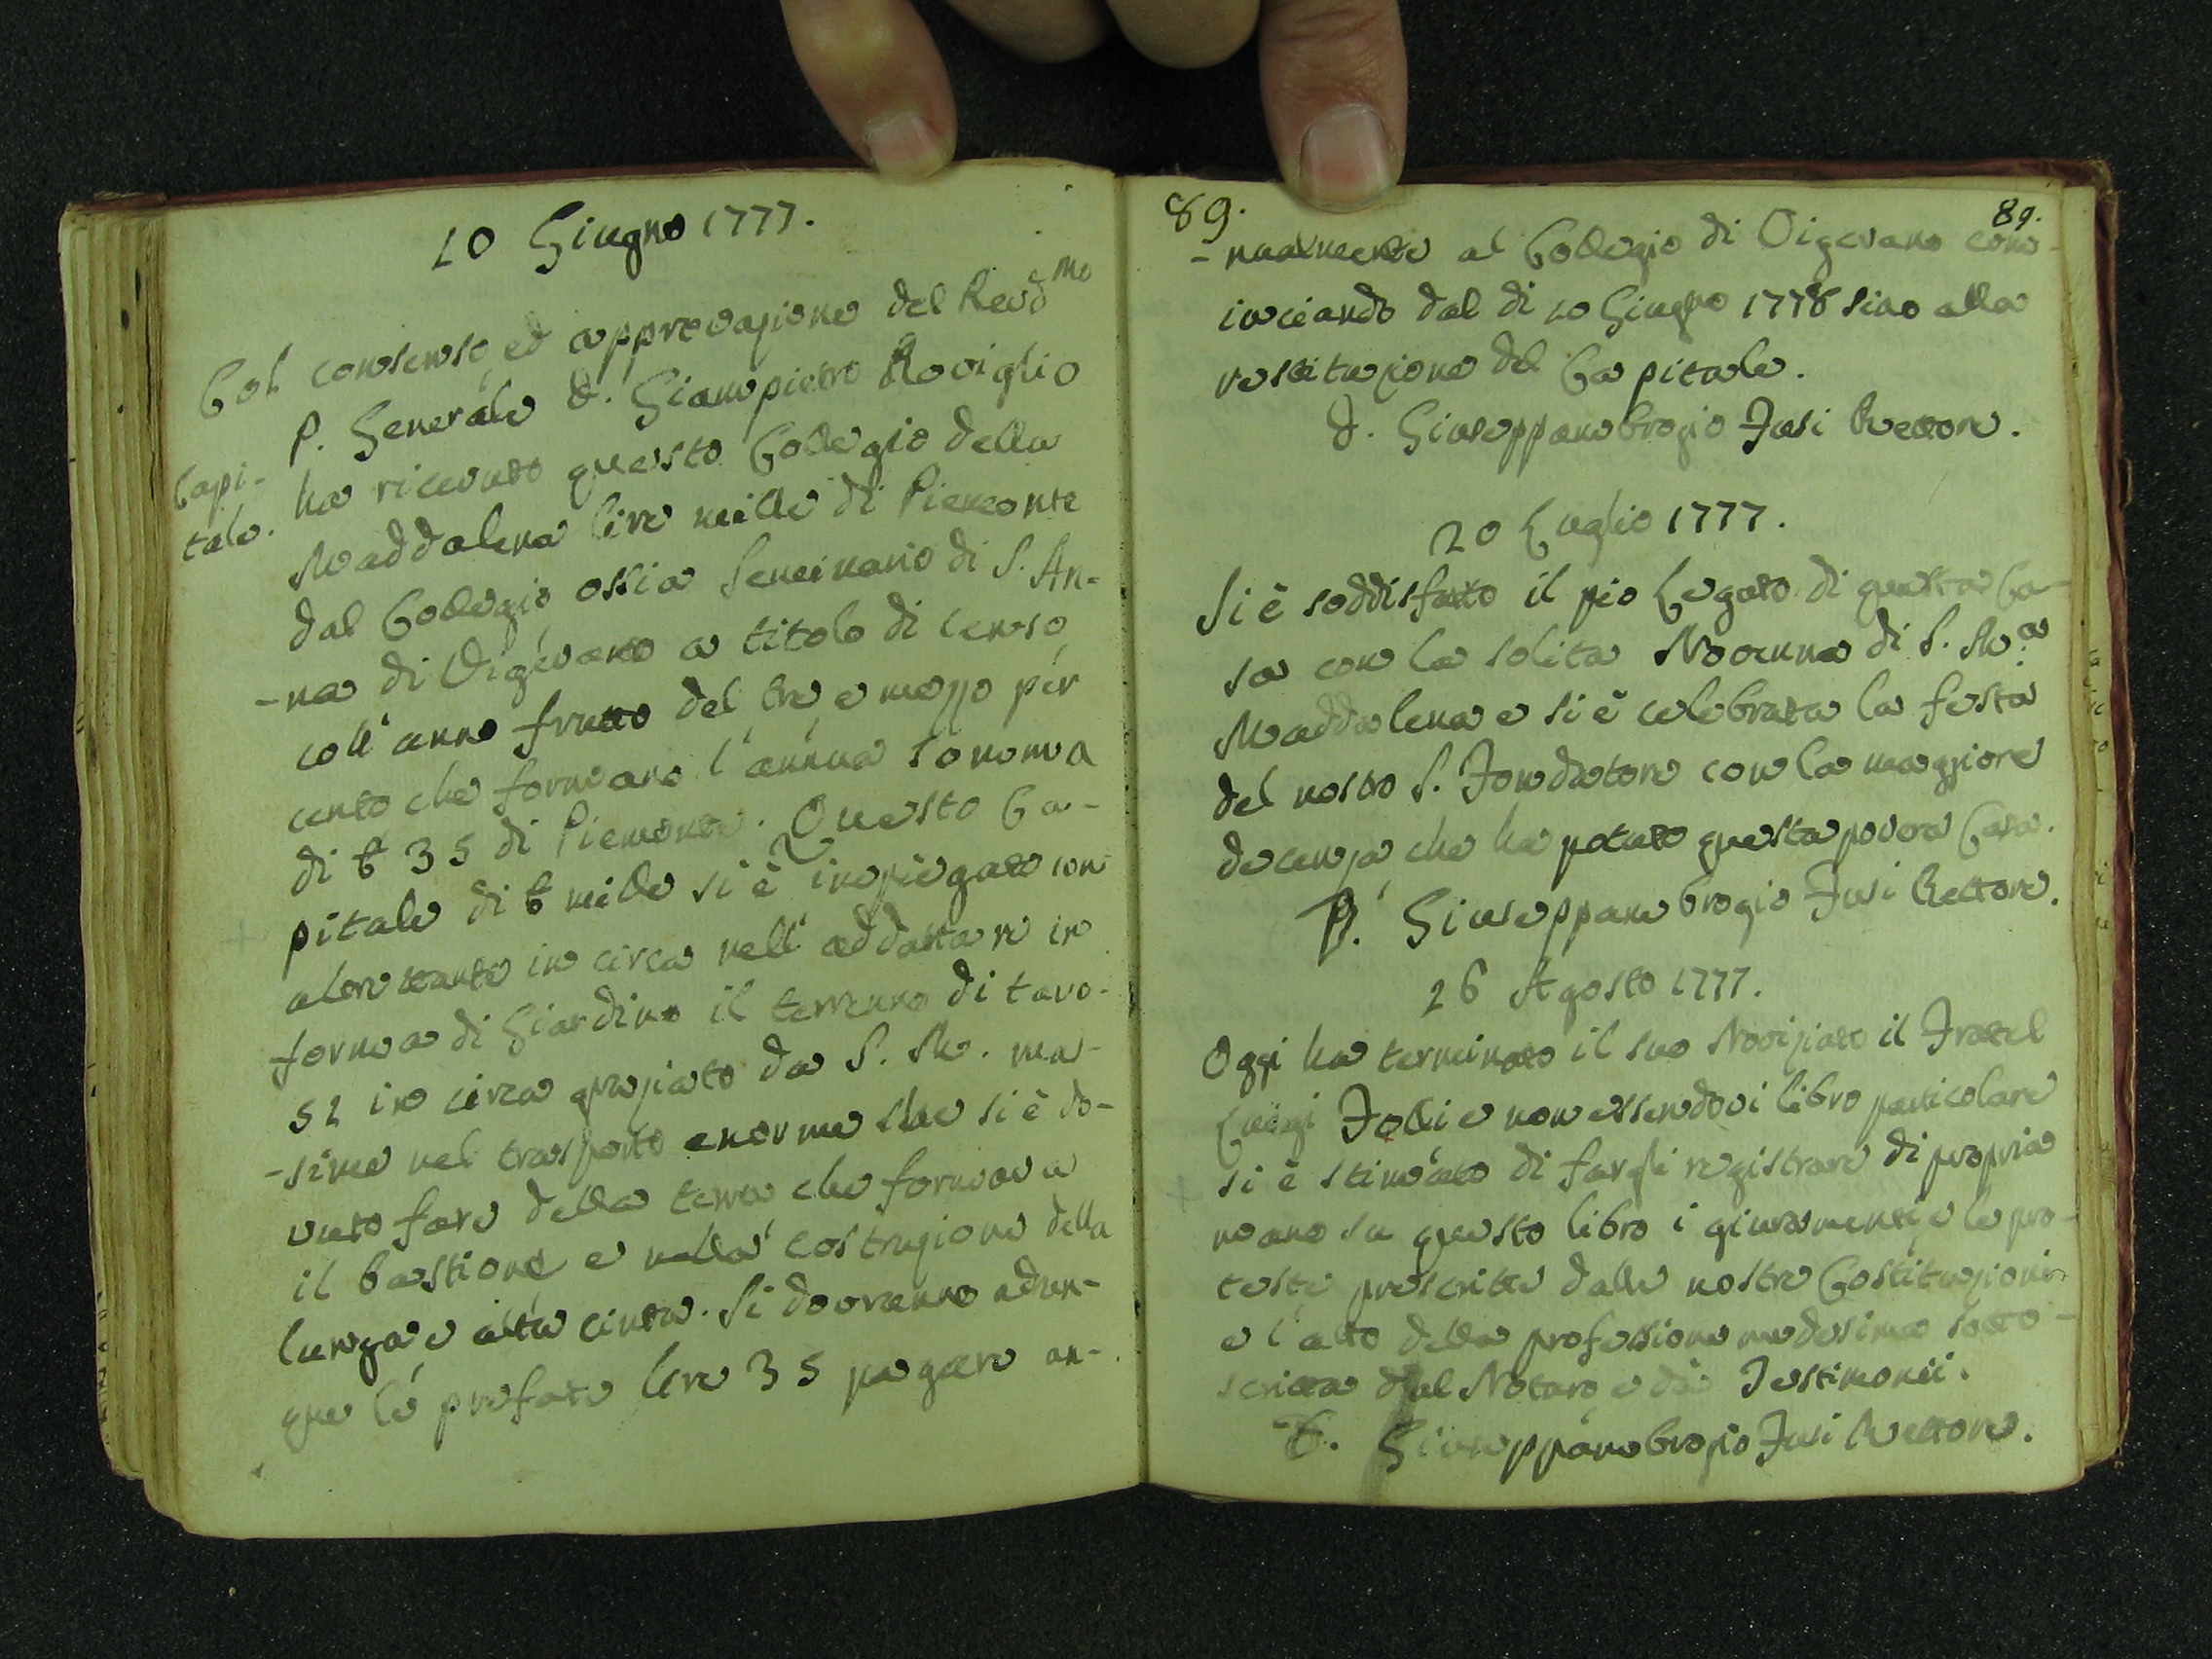 10 Giugno 1777.
Col consenso, ed approvazione del Revd.mo
P. Generale D. Giampietro Roviglio
Capi-
tale.
ha ricevuto questo Collegio della
Maddalena lire mille di Piemonte
dal Collegio ossia Seminario di S. An-
-na di Vigevano a titolo di censo
coll' anno frutto del tre e mezzo per
cento che formano l'annua somma
di £ 35 di Piemonte. Questo Ca-
pitale di £ mille si è impiegato con
altre tante in circa nell' addattare in
forma di Giardino il terreno di tavo-
52 in circa graziato da S. M. mas-
-sime nel trasporto enorme che si è do-
vuto fare della terra che formava
il bastione e nella costruzione della
lunga e alta cinta. Si dovranno adun-
que le prefate lire 35 pagare an-
89.
89.
-nualmente al Collegio di Vigevano com-
inciando dal di 10 Giugno 1778 sino alla
restituzione del Capitale.
D. Giuseppambrogio Fusi Rettore.
20 Luglio 1777.
Si è soddisfatto il pio Legato di questa Ca-
sa con la solita Novenna di S. M.a
Maddalena e si è celebrata la festa
del nostro S. Fondatore con la maggiore
decenza che ha potuto questa povera Casa.
D. Giuseppambrogio Fusi Rettore.
26 Agosto 1777.
Oggi ha terminato il suo Noviziato il Fratel
Luigi Folli e non essendovi libro particolare
si è stimato di fargli registrare di propria
mano su questo libro i giuramenti, e le pro-
teste prescritte dalle nostre Costituzioni
e l'atto della professione medesima sotto-
scritta dal Notaro e da Testimonii.
D. Giuseppambrogio Fusi Rettore.